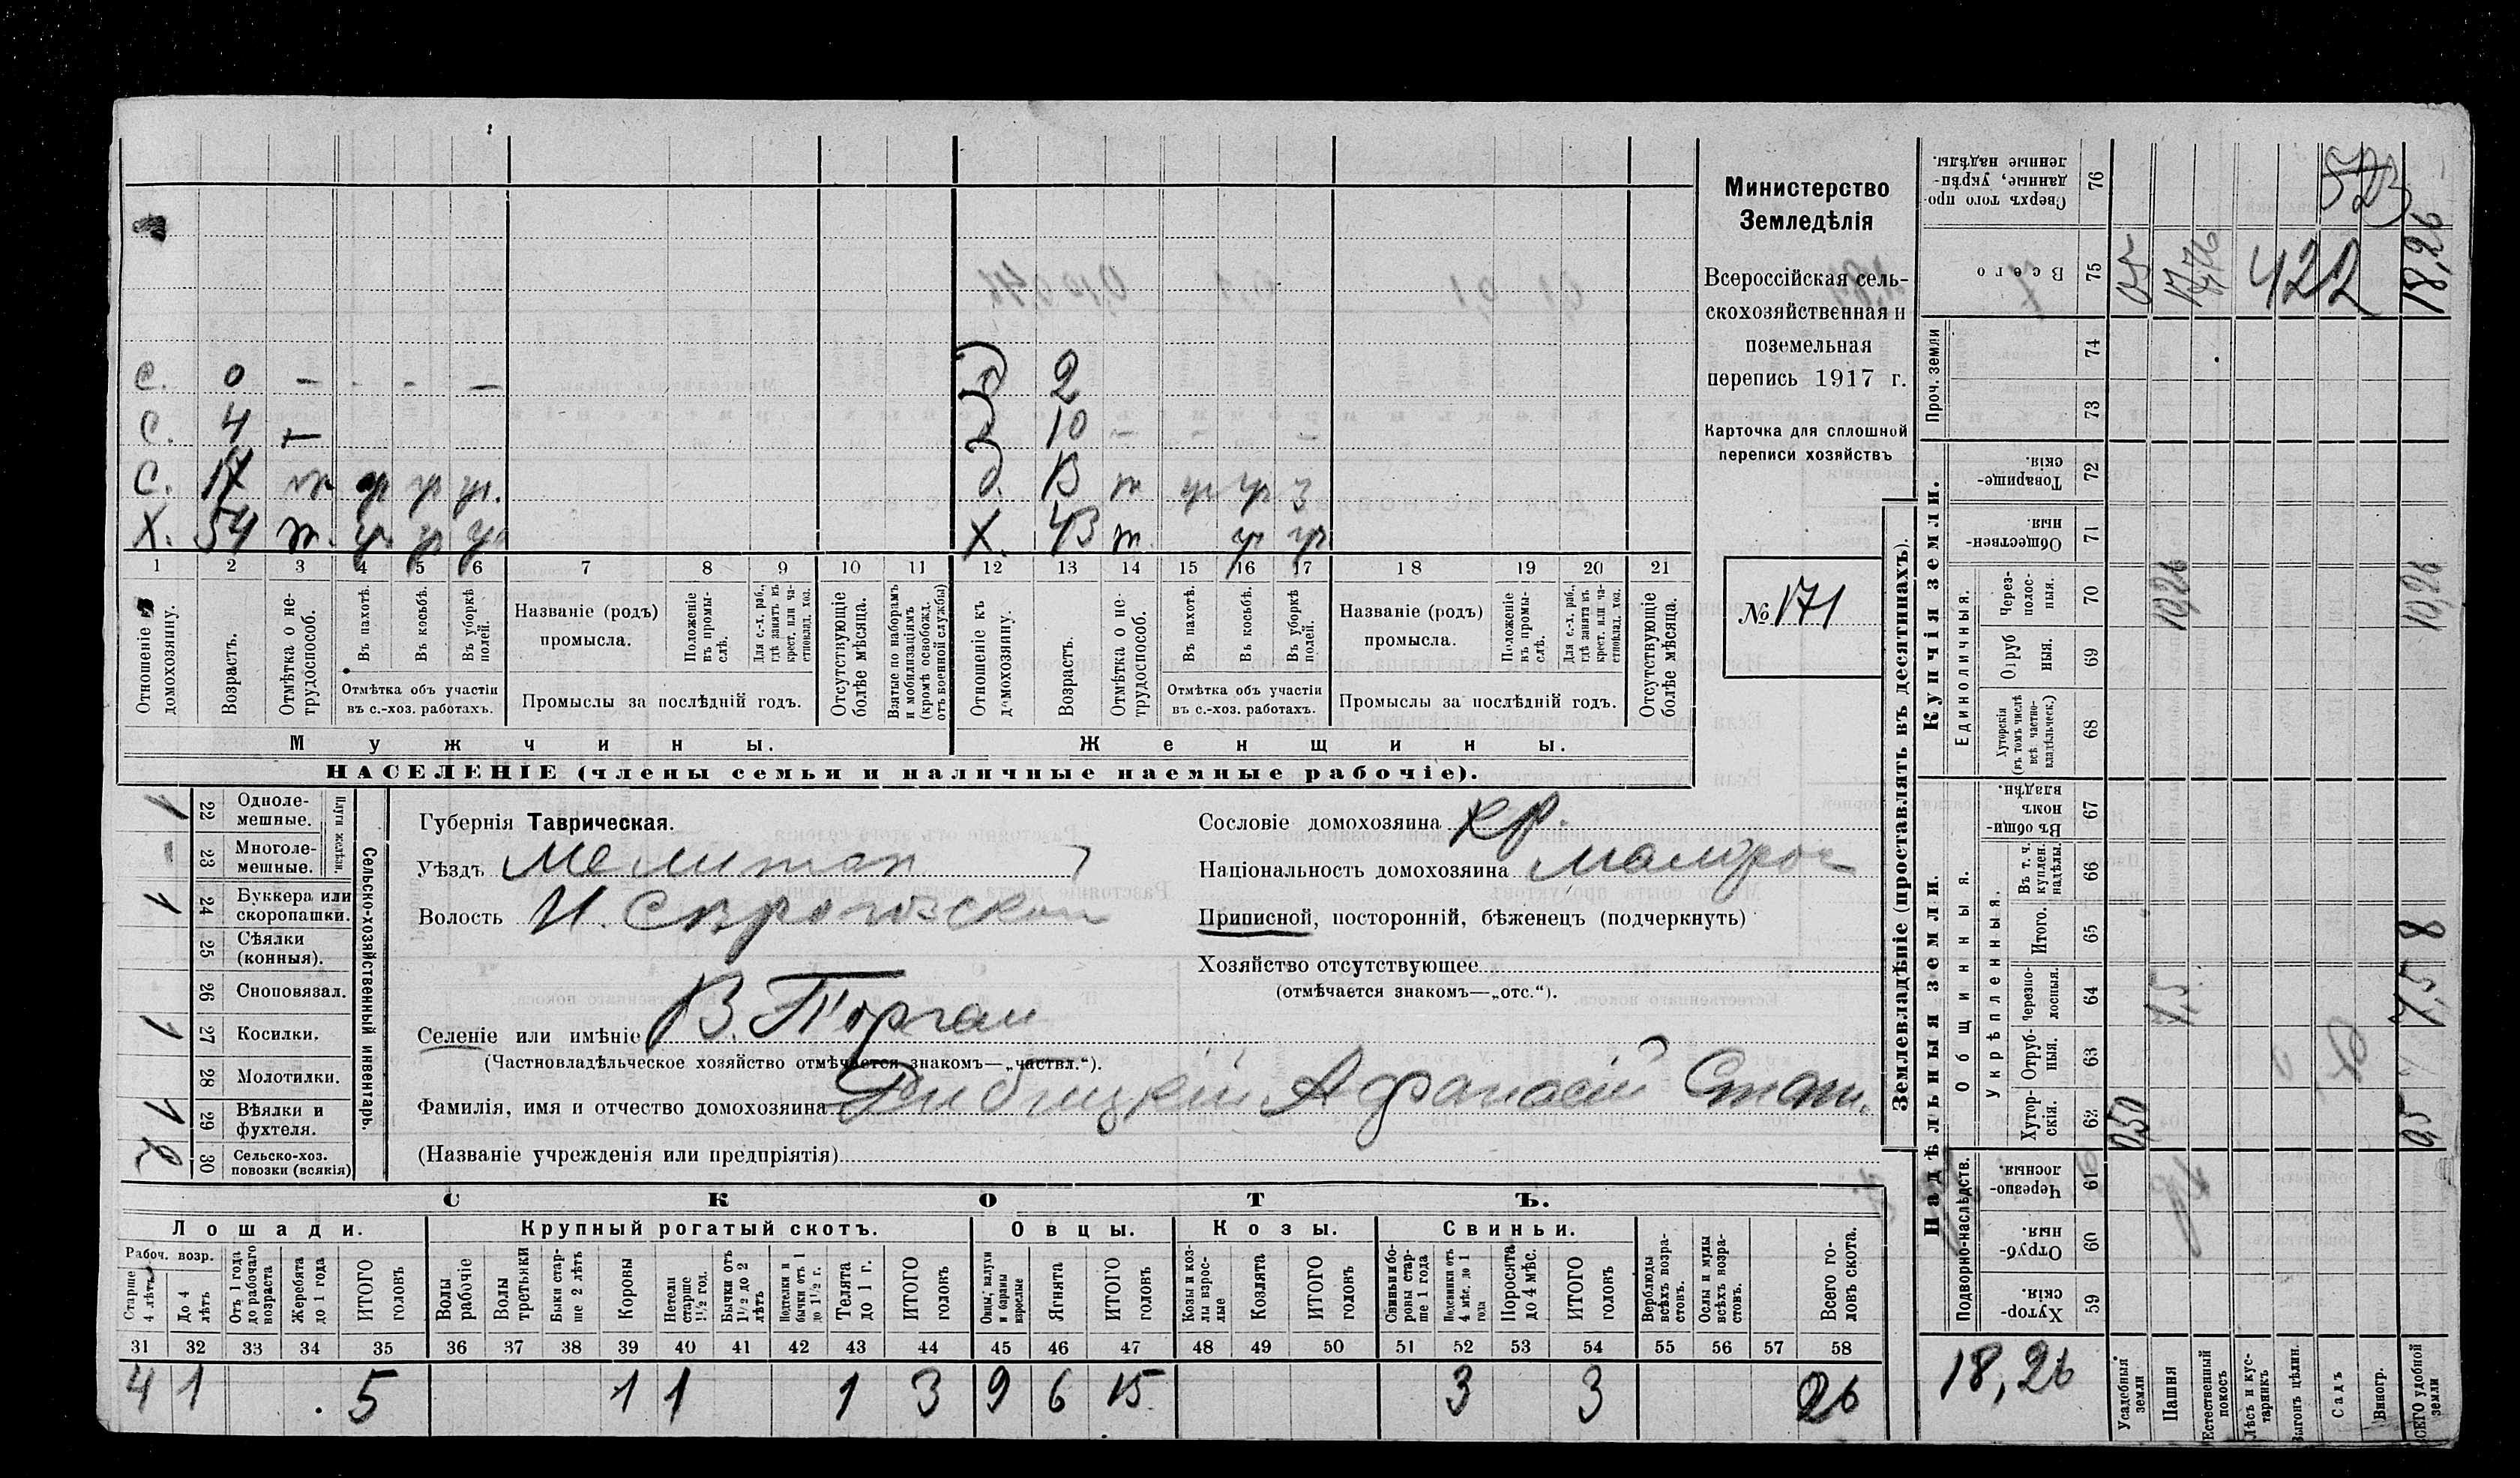 Министерство
Земледѣлія
Всероссійская сель-
скохозяйственная и
поземельная
перепись 1917 г.
Карточка для сплошной
переписи хозяйствъ
№ 171
с. 0 — - - —
с. 4 —
с. 17
х. 54 т.
2
д 10 — — —
д. 13 т
х. 43 т.
1 2 3 4 5 6 7 8 9 10 11 12 13 14 15 16 17 18 19 20 21
Отношеніе къ домохозяину.
Возрастъ.
Отмѣтка о не-трудоспособ.
Въ пахотѣ.
Въ косьбѣ.
Въ уборкѣ полей.
Отмѣтка объ участіи
въ с.-хоз. работахъ.
Названіе (родъ)
промысла.
Положеніе въ промы-слѣ.
Для с.-х. раб., гдѣ занятъ въ крест. или ча-стновлад. хоз.
Промыслы за послѣдній годъ.
Отсутствующіе болѣе мѣсяца.
Взятые по наборамъ и мобилизаціямъ (кромѣ освобожд. отъ военной службы)
Отношеніе къ домохозяину.
Возрастъ.
Отмѣтка о не-трудоспособ.
Въ пахотѣ.
Въ косьбѣ.
Въ уборкѣ полей.
Отмѣтка объ участіи
въ с.-хоз. работахъ.
Названіе (родъ)
промысла.
Положеніе въ промы-слѣ.
Для с.-х. раб., гдѣ занята въ крест. или ча-стновлад. хоз.
Промыслы за послѣдній годъ.
Отсутствующіе болѣе мѣсяца.
Мужчины.
Женщины.
НАСЕЛЕНІЕ (члены семьи и наличные наемные рабочіе).
Сельско-хозяйственный инвентарь.
Плуги желѣзн.
1 22 Одноле-мешные.
23 Многоле-мешные.
1 24 Буккера или скоропашки.
25 Сѣялки (конныя).
26 Сноповязал.
1 27 Косилки.
28 Молотилки.
1 29 Вѣялки и фухтеля.
2 30 Сельско-хоз. повозки (всякія)
Губернія Таврическая.
Уѣздъ Мелитоп
Волость Н. Сѣрогозская
Селеніе или имѣніе В. Торгаи
(Частновладѣльческое хозяйство отмѣчается знакомъ—„частвл.“).
Фамилія, имя и отчество домохозяина Рибицкій Афанасій
(Названіе учрежденія или предпріятія)
Сословіе домохозяина кр.
Національность домохозяина малорос
Приписной, посторонній, бѣженецъ (подчеркнуть)
Хозяйство отсутствующее
(отмѣчается знакомъ—„отс.“).
СКОТЪ.
Лошади.
Рабоч. возр.
Старше 4 лѣтъ
До 4 лѣтъ
Отъ 1 года до рабочаго возраста
Жеребята до 1 года
ИТОГО головъ
Крупный рогатый скотъ.
Волы рабочіе
Волы третьяки
Быки стар-ше 2 лѣтъ
Коровы
Нетели старше 1½ год.
Бычки отъ 1½ до 2 лѣтъ
Подтелки и бычки отъ 1 до 1½ г.
Телята до 1 г.
ИТОГО головъ
Овцы.
Овцы, валухи и бараны взрослые
Ягнята
ИТОГО головъ
Козы.
Козы и коз-лы взрос-лые
Козлята
ИТОГО головъ
Свиньи.
Свиньи и бо-ровы стар-ше 1 года
Подсвинки отъ 4 мѣс. до 1 года
Поросята до 4 мѣс.
ИТОГО головъ
Верблюды всѣхъ возра-стовъ.
Ослы и мулы всѣхъ возра-стовъ.
Всего го-ловъ скота.
31 32 33 34 35 36 37 38 39 40 41 42 43 44 45 46 47 48 49 50 51 52 53 54 55 56 57 58
4 1 5 1 1 1 3 9 6 15 3 3 26
Землевладѣніе (проставлять въ десятинахъ).
Купчія земли.
Сверхъ того про-данные, укрѣп-ленные надѣлы. 76
Всего 75 18,26
Проч. земли 74 73
Товарище-скія. 72
Обществен-ныя. 71
Единоличныя.
Через-полос-ныя. 70 10,26 10,26
Отруб ныя. 69
Хуторскія (въ томъ числѣ всѣ частно-владѣльческ.) 68
422
Надѣльныя земли.
Въ общи-номъ владѣн. 67
Общинныя.
Укрѣпленныя.
Въ т. ч. куплен. надѣлы. 66
Итого. 65
Черезпо-лосныя. 64 7,5
Отруб-ныя. 63
Хутор-скія. 62 0,50
Подворно-наслѣдств.
Черезпо-лосныя. 61
Отруб-ныя 60
Хутор-скія. 59
18,26
Усадебныя земли
Пашня
Естественный покосъ
Лѣсъ и кус-тарникъ
Выгонъ цѣлин.
Садъ
Виногр.
ВСЕГО удобной земли